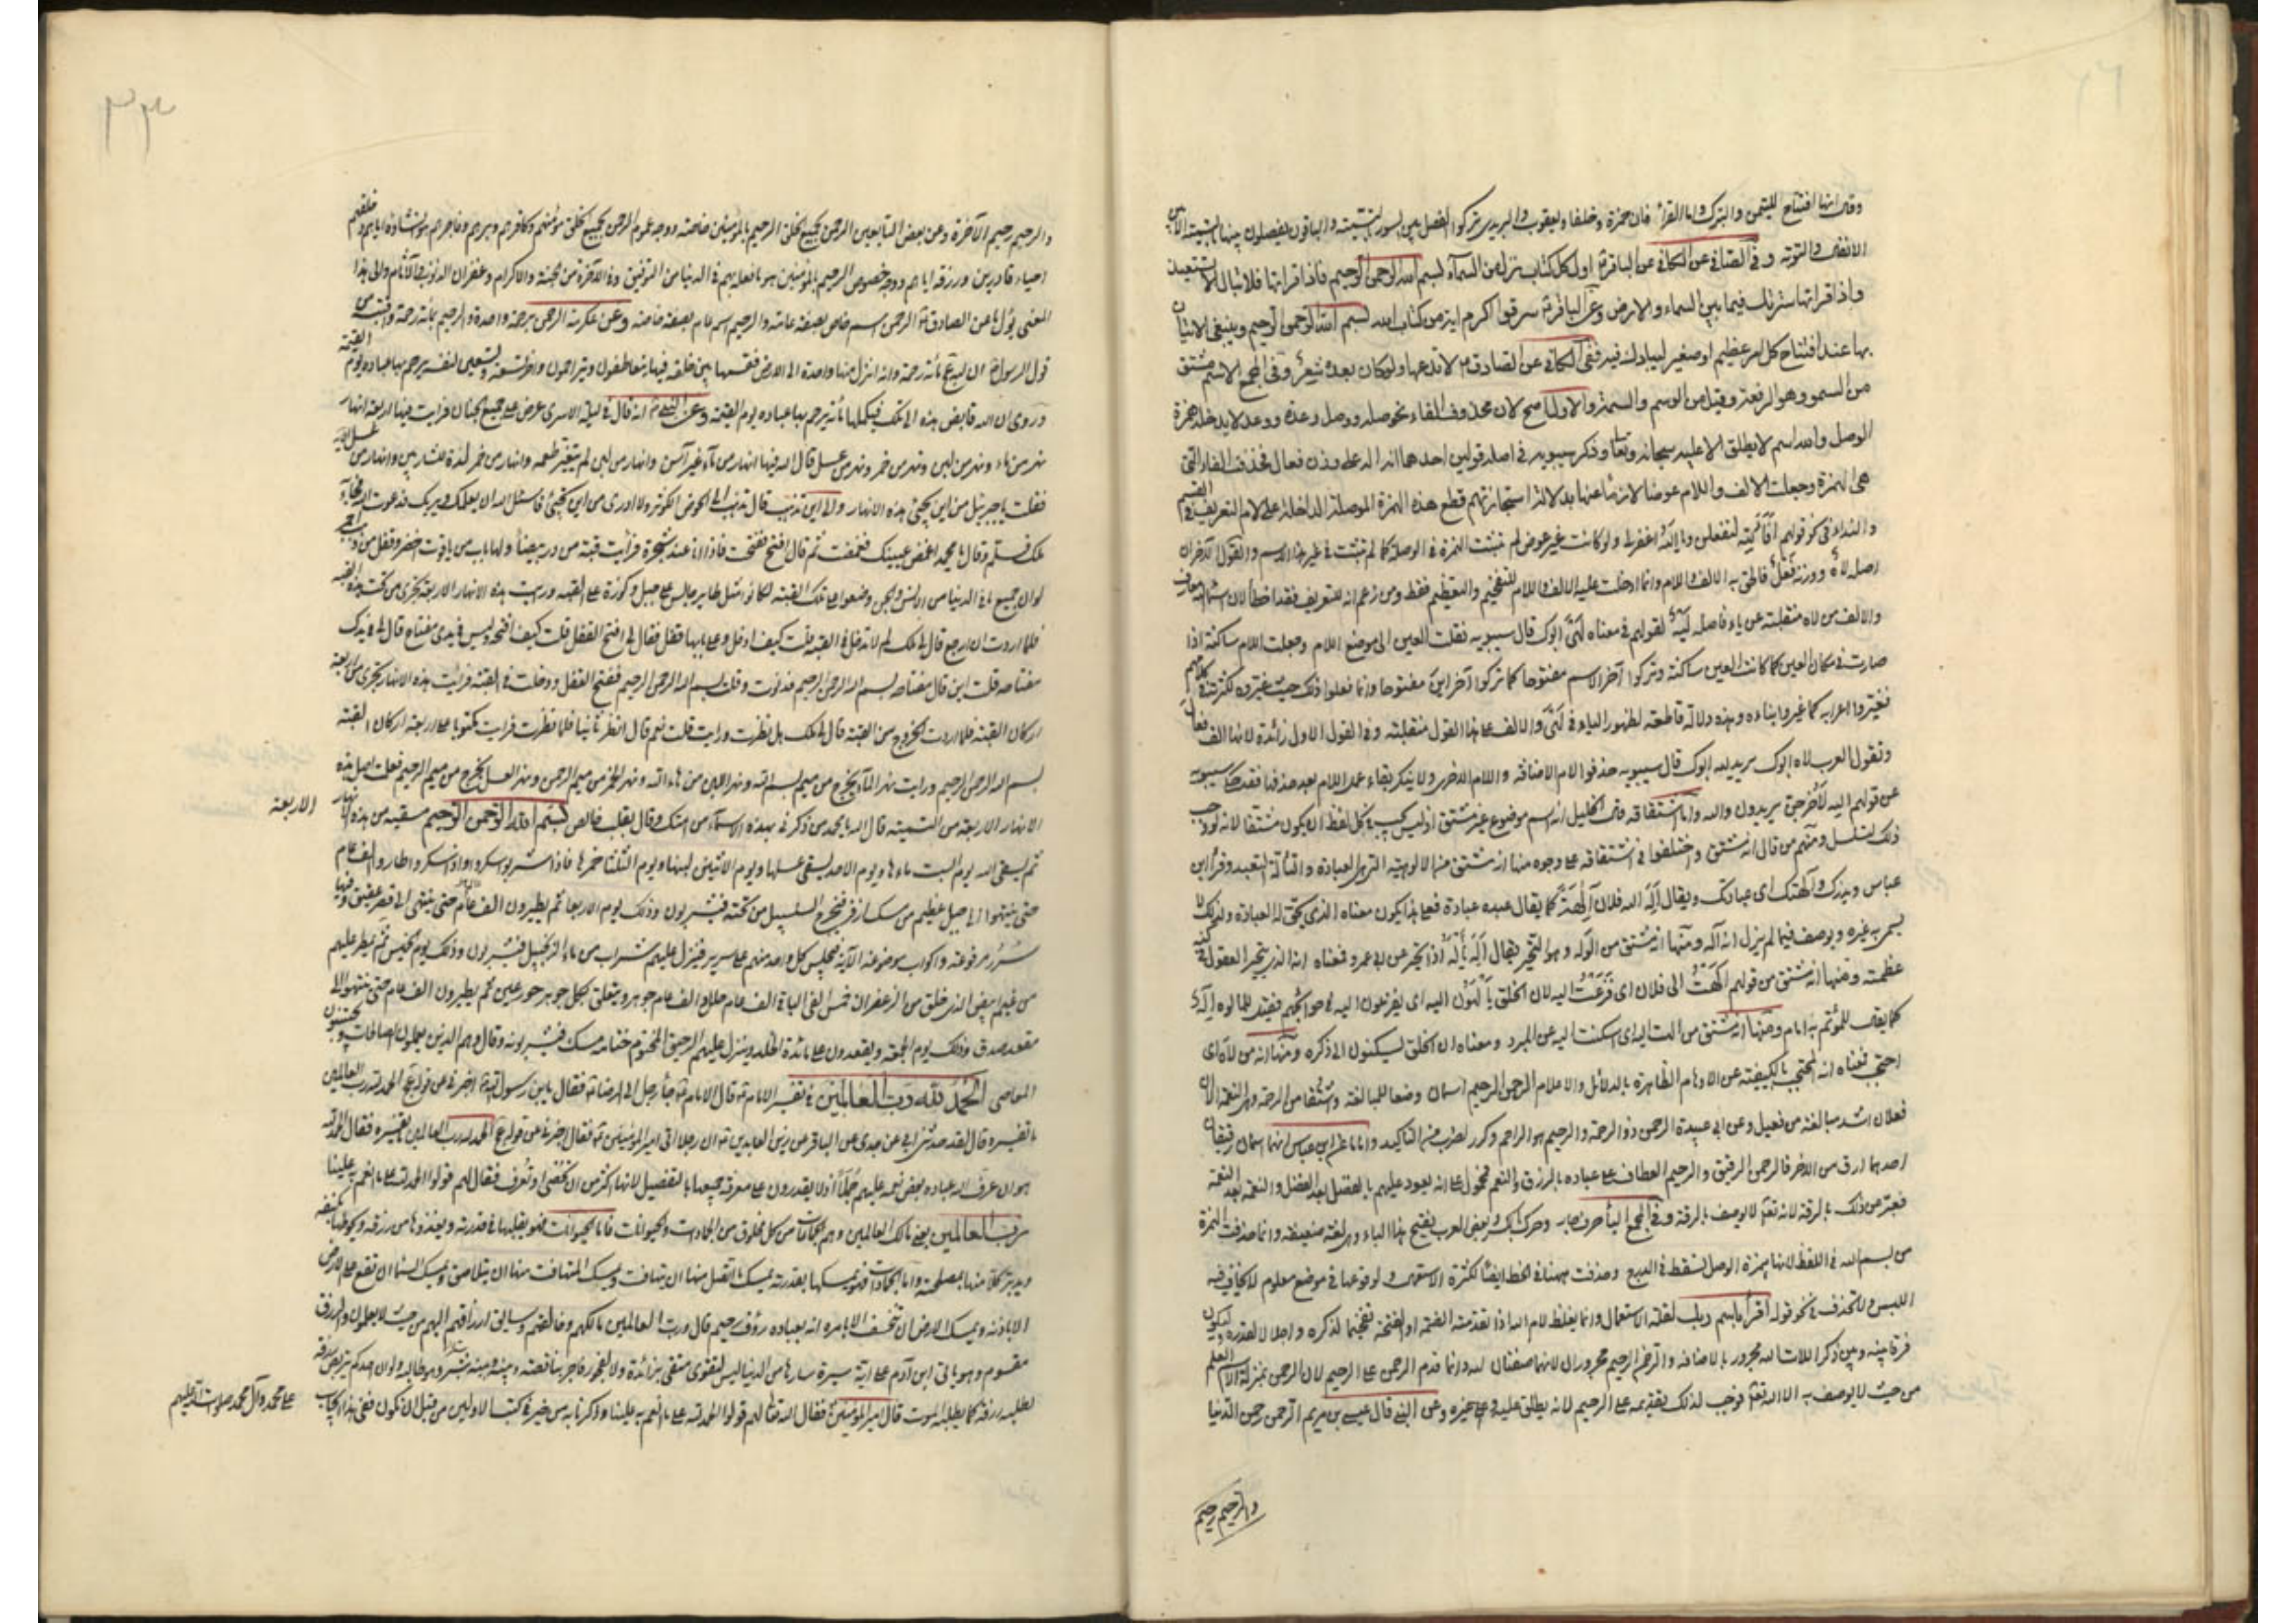 وقيل انها افتتاح للتيمن والتبرك واما القراء فان حمزة وخلفا ويعقوب واليزيدي تركوا الفصل بين السور بالتسمية والباقون يفصلون بينها بالتسمية الا بين
الانفال والتوبة وفي الكافي عن الباقر اول كل كتاب نزل من السماء بسم الله الرحمن الرحيم فاذا قراتها فلا تبال الا تستعيذ
واذا قراتها سترتك فيما بين السماء والارض وعن الباقر سرقوا اكرم اية من كتاب الله بسم الله الرحمن الرحيم وينبغي الاتيان
بها عند افتتاح كل امر عظيم او صغير ليبارك فيه ففي الكافي عن الصادق لا تدعها ولو كان بعده شعر وفي المجمع الاسم مشتق
من السمو وهو الرفعة وقيل من الوسم والسمة والاول اصح لان محذوف الفاء نحو صلة ووصل وعدة ووعد لا يدخله همزة
الوصل والله اسم لا يطلق الا عليه سبحانه وتعالى وذكر سيبويه في اصله قولين احدهما انه اله على وزن فعال فحذف الفاء التي
هي الهمزة وجعلت الالف واللام عوضا لازما عنها بدلالة استجازتهم قطع هذه الهمزة الموصلة الداخلة على لام التعريف في القسم
والنداء في نحو قولهم افالله لتفعلن ويا الله اغفر لي ولو كانت غير عوض لم تثبت الهمزة في الوصل كما لم تثبت في غير هذا الاسم والقول الاخر ان
اصله لاه ووزنه فعل فالحق به الالف واللام وانما ادخلت عليه الالف واللام للتفخيم والتعظيم فقط ومن زعم انه للتعريف فقد اخطأ لان اسماء الله معارف
والالف من لاه منقلبة عن ياء فاصله ليه لقولهم في معناه لهي ابوك قال سيبويه نقلت العين الى موضع اللام وجعلت اللام ساكنة اذا
صارت في مكان العين كما كانت العين ساكنة وتركوا آخر الاسم مفتوحا كما تركوا آخر اين مفتوحا وانما فعلوا ذلك حيث غيروه لكثرته في كلامهم
فغيروا اعرابه كما غيروا بناءه وهذه دلالة قاطعة لظهور الياء في لهي والالف على هذا القول منقلبة وفي القول الاول زائدة لانها الف فعال
وتقول العرب لاه ابوك يريد لله ابوك قال سيبويه حذفوا لام الاضافة واللام الاخرى ولا ينكر بقاء عمل اللام بعد حذفها فقد حكى سيبويه
عن قولهم الله لاخرجن يريدون والله واما اشتقاقه فمن الخليل انه اسم موضوع غير مشتق اذ ليس يجب في كل لفظ ان يكون مشتقا لانه لو وجب
ذلك لتسلسل ومنهم من قال انه مشتق واختلفوا في اشتقاقه على وجوه منها انه مشتق من الالوهية التي هي العبادة والتأله التعبد وقرأ ابن
عباس ويذرك وآلهتك اى عبادتك ويقال اله الله فلان الهة كما يقال عبده عبادة فعلى هذا يكون معناه الذي يحق له العبادة ولذلك لا
يسمى به غيره ويوصف فيما لم يزل انه اله ومنها انه مشتق من الوله وهو التحير يقال اله يأله اذا تحير عن ابي عمرو فمعناه انه الذي يتحير العقول في كنه
عظمته ومنها انه مشتق من قولهم الهت الى فلان اى فزعت اليه لان الخلق يألهون اليه اى يفزعون اليه في حوائجهم فقيل للمالوه اله
كما يقال للمؤتم به امام ومنها انه مشتق من الهت اليه اى سكنت اليه عن المبرد ومعناه ان الخلق يسكنون الى ذكره ومنها انه من لاه اى
احتجب فمعناه انه المحتجب بالكيفية عن الاوهام الظاهرة بالدلائل والاعلام الرحمن الرحيم اسمان وضعا للمبالغة واشتقا من الرحمة وهي النعمة الا ان
فعلان اشد مبالغة من فعيل وعن ابي عبيدة الرحمن ذو الرحمة والرحيم هو الراحم وكرر لضرب من التاكيد واما ما عن ابن عباس انهما اسمان رقيقان
احدهما ارق من الاخر فالرحمن الرقيق والرحيم العطاف على عباده بالرزق والنعم فمحمول على انه يعود عليهم بالفضل بعد الفضل والنعمة بعد النعمة
فعبر عن ذلك بالرقة لانه تعالى لا يوصف بالرقة وفي المجمع الباء حرف جار وحركت بالكسر وبعض العرب يفتح هذا الباء وهي لغة ضعيفة وانما حذفت الهمزة
من بسم الله في اللفظ لانها همزة الوصل تسقط في الدرج وحذفت ههنا في الخط ايضا لكثرة الاستعمال ولوقوعها في موضع معلوم لا يخاف فيه
اللبس ولا تحذف في نحو قوله اقرأ باسم ربك لقلة الاستعمال وانما يغلظ لام الله اذا تقدمته الضمة او الفتحة تفخيما لذكره واجلالا لقدره وليكون
فرقا بينه وبين ذكر اللات الله مجرور بالاضافة والرحمن الرحيم مجروران لانهما صفتان لله وانما قدم الرحمن على الرحيم لان الرحمن بمنزلة الاسم العلم
من حيث لا يوصف به الا الله تعالى فوجب لذلك تقديمه على الرحيم لانه يطلق عليه وعلى غيره وعن النبي قال عيسى بن مريم الرحمن رحمن الدنيا
والرحيم رحيم
٣٣
والرحيم رحيم الآخرة وعن بعض التابعين الرحمن بجميع الخلق الرحيم بالمؤمنين خاصة ووجه عموم الرحمن بجميع الخلق مؤمنهم وكافرهم وبرهم وفاجرهم هو انشاءه اياهم وخلقهم
احياء قادرين ورزقه اياهم ووجه خصوص الرحيم بالمؤمنين هو ما فعله بهم في الدنيا من التوفيق وفي الآخرة من الجنة والاكرام وغفران الذنوب والآثام والى هذا
المعنى يؤل ما عن الصادق الرحمن اسم خاص بصفة عامة والرحيم اسم عام بصفة خاصة وعن عكرمة الرحمن برحمة واحدة والرحيم بمائة رحمة واقتبس من
قول الرسول ان لله مائة رحمة وانه انزل منها واحدة الى الارض فقسمها بين خلقه فبها يتعاطفون ويتراحمون واخر تسعة وتسعين لنفسه يرحم بها عباده يوم القيمة
وروى ان الله قابض هذه الى تلك فيكملها مائة يرحم بها عباده يوم القيمة وعن النبي انه قال في ليلة الاسرى عرض على جميع الجنان فرايت فيها اربعة انهار
نهر من ماء ونهر من لبن ونهر من خمر ونهر من عسل قال الله فيها انهار من ماء غير آسن وانهار من لبن لم يتغير طعمه وانهار من خمر لذة للشاربين وانهار من عسل
فقلت يا جبرئيل من اين يجيئ هذه الانهار والى اين تذهب قال تذهب الى الحوض الكوثر ولا ادرى من اين يجيئ فاسئل الله ان يعلمك ويريك فدعوت الله فجاء
ملك فسلم وقال يا محمد اغمض عينيك فغمضت ثم قال افتح ففتحت فاذا انا عند شجرة فرايت قبة من در بيضاء ولها باب من ياقوت اخضر وقفل من ذهب احمر
لو ان جميع ما في الدنيا من الانس والجن وضعوا على تلك القبة لكانوا مثل طاير جالس على جبل وكورة على القبة ورايت هذه الانهار الاربعة تجرى من تحت هذه القبة
فلما اردت ان ارجع قال لي ملك لم لا تدخل في القبة قلت كيف ادخل وعلى بابها قفل فقال لي افتح القفل قلت كيف افتحه وليس في يدى مفتاح قال لي في يدك
مفتاحه قلت اين قال مفتاحه بسم الله الرحمن الرحيم فدنوت وقلت بسم الله الرحمن الرحيم ففتح القفل ودخلت في القبة فرايت هذه الانهار تجرى من اربعة
اركان القبة فلما اردت الخروج من القبة قال لي الملك هل نظرت ورايت قلت نعم قال انظر ثانيا فلما نظرت فرايت مكتوبا على اربعة اركان القبة
بسم الله الرحمن الرحيم ورايت نهر الماء يخرج من ميم بسم الله ونهر اللبن من هاء الله ونهر الخمر من ميم الرحمن ونهر العسل يخرج من ميم الرحيم فعلمت اصل هذه
الانهار الاربعة من التسمية قال الله يا محمد من ذكرني بهذه الاسماء من امتك وقال بقلب خالص بسم الله الرحمن الرحيم سقيته من هذه الانهار
الاربعة
ثم يسقى الله يوم السبت ماءها ويوم الاحد يسقى عسلها ويوم الاثنين لبنها ويوم الثلثا خمرها فاذا شربوا سكروا واذا سكروا طاروا الف عام
حتى ينتهوا الى جبل عظيم من مسك اذفر فيخرج السلسبيل من تحته فيشربون وذلك يوم الاربعا ثم يطيرون الف عام حتى ينتهى الى قصر عقيق وفيها
سرر مرفوعة واكواب موضوعة الآية فيجلس كل واحد منهم على سرير فينزل عليهم شراب من ماء الزنجبيل فيشربون وذلك يوم الخميس ثم يمطر عليهم
مقعد صدق وذلك يوم الجمعة ويقعدون على مائدة الخلد وينزل عليهم الرحيق المختوم ختامه مسك فيشربونه وقال وهم الذين يعملون الصالحات ويجتنبون
المعاصي الحمد لله رب العالمين في تفسير الامام قال الامام جاء رجل الى الرضا فقال يا بن رسول الله اخبرني عن قوله عج الحمد لله رب العالمين
ما تفسيره قال لقد حدثني ابي عن جدى عن الباقر عن زين العابدين ان رجلا اتى امير المؤمنين فقال اخبرني عن قوله عج الحمد لله رب العالمين ما تفسيره فقال الحمد لله
هو ان عرف الله عباده بعض نعمه عليهم جملا اذ لا يقدرون على معرفة جميعها بالتفصيل لانها اكثر من ان تحصى او تعرف فقال لهم قولوا الحمد لله على ما انعم به علينا
رب العالمين يعني مالك العالمين وهم الجماعات من كل مخلوق من الجمادات والحيوانات فاما الحيوانات فهو يقلبها في قدرته ويغذوها من رزقه ويحوطها بكنفه
ويدبر كلا منها بمصلحته واما الجمادات فهو يمسكها بقدرته يمسك ما اتصل منها ان يتهافت ويمسك المتهافت منها ان يتلاصق ويمسك السماء ان تقع على الارض
الا باذنه ويمسك الارض ان تنخسف الا بامره انه بعباده رؤف رحيم قال ورب العالمين مالكهم وخالقهم وسائق ارزاقهم اليهم من حيث لا يعلمون والرزق
مقسوم وهو ياتي ابن آدم على اية سيرة سارها من الدنيا ليس لتقوى متقى بزائدة ولا لفجور فاجر بناقصة وبينه وبينه ستر وهو طالبه ولو ان احدكم يتربص رزقه
لطلبه رزقه كما يطلبه الموت قال امير المؤمنين فقال الله تعالى لهم قولوا الحمد لله على ما انعم به علينا وذكرنا به من خير في كتب الاولين من قبل ان نكون ففي هذا ايجاب
على محمد وآل محمد صلوات الله عليهم